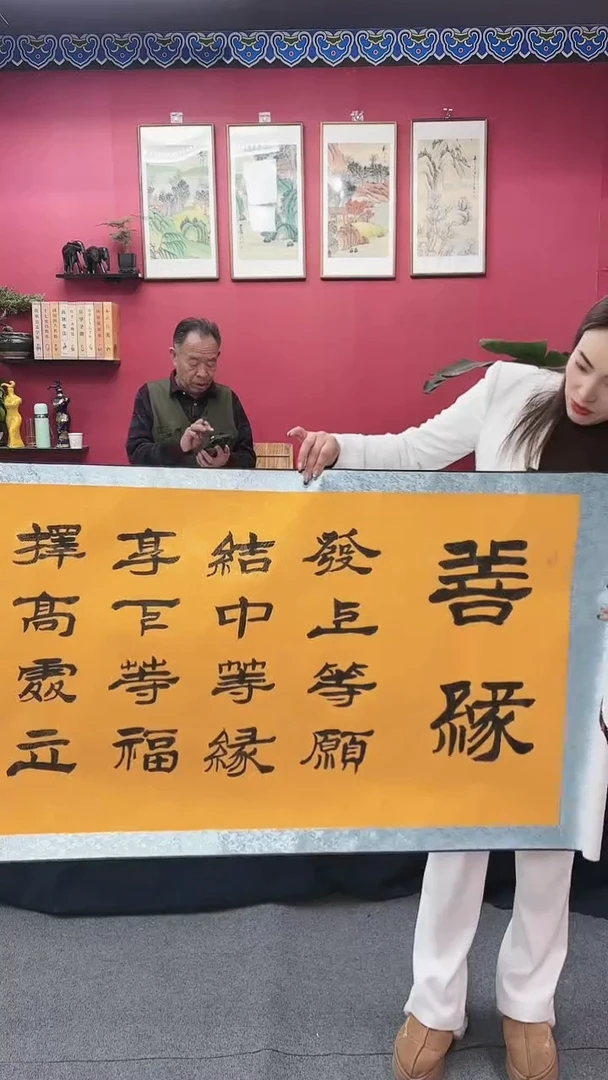 善緣
發上等願
結中等緣
享下等福
擇高處立